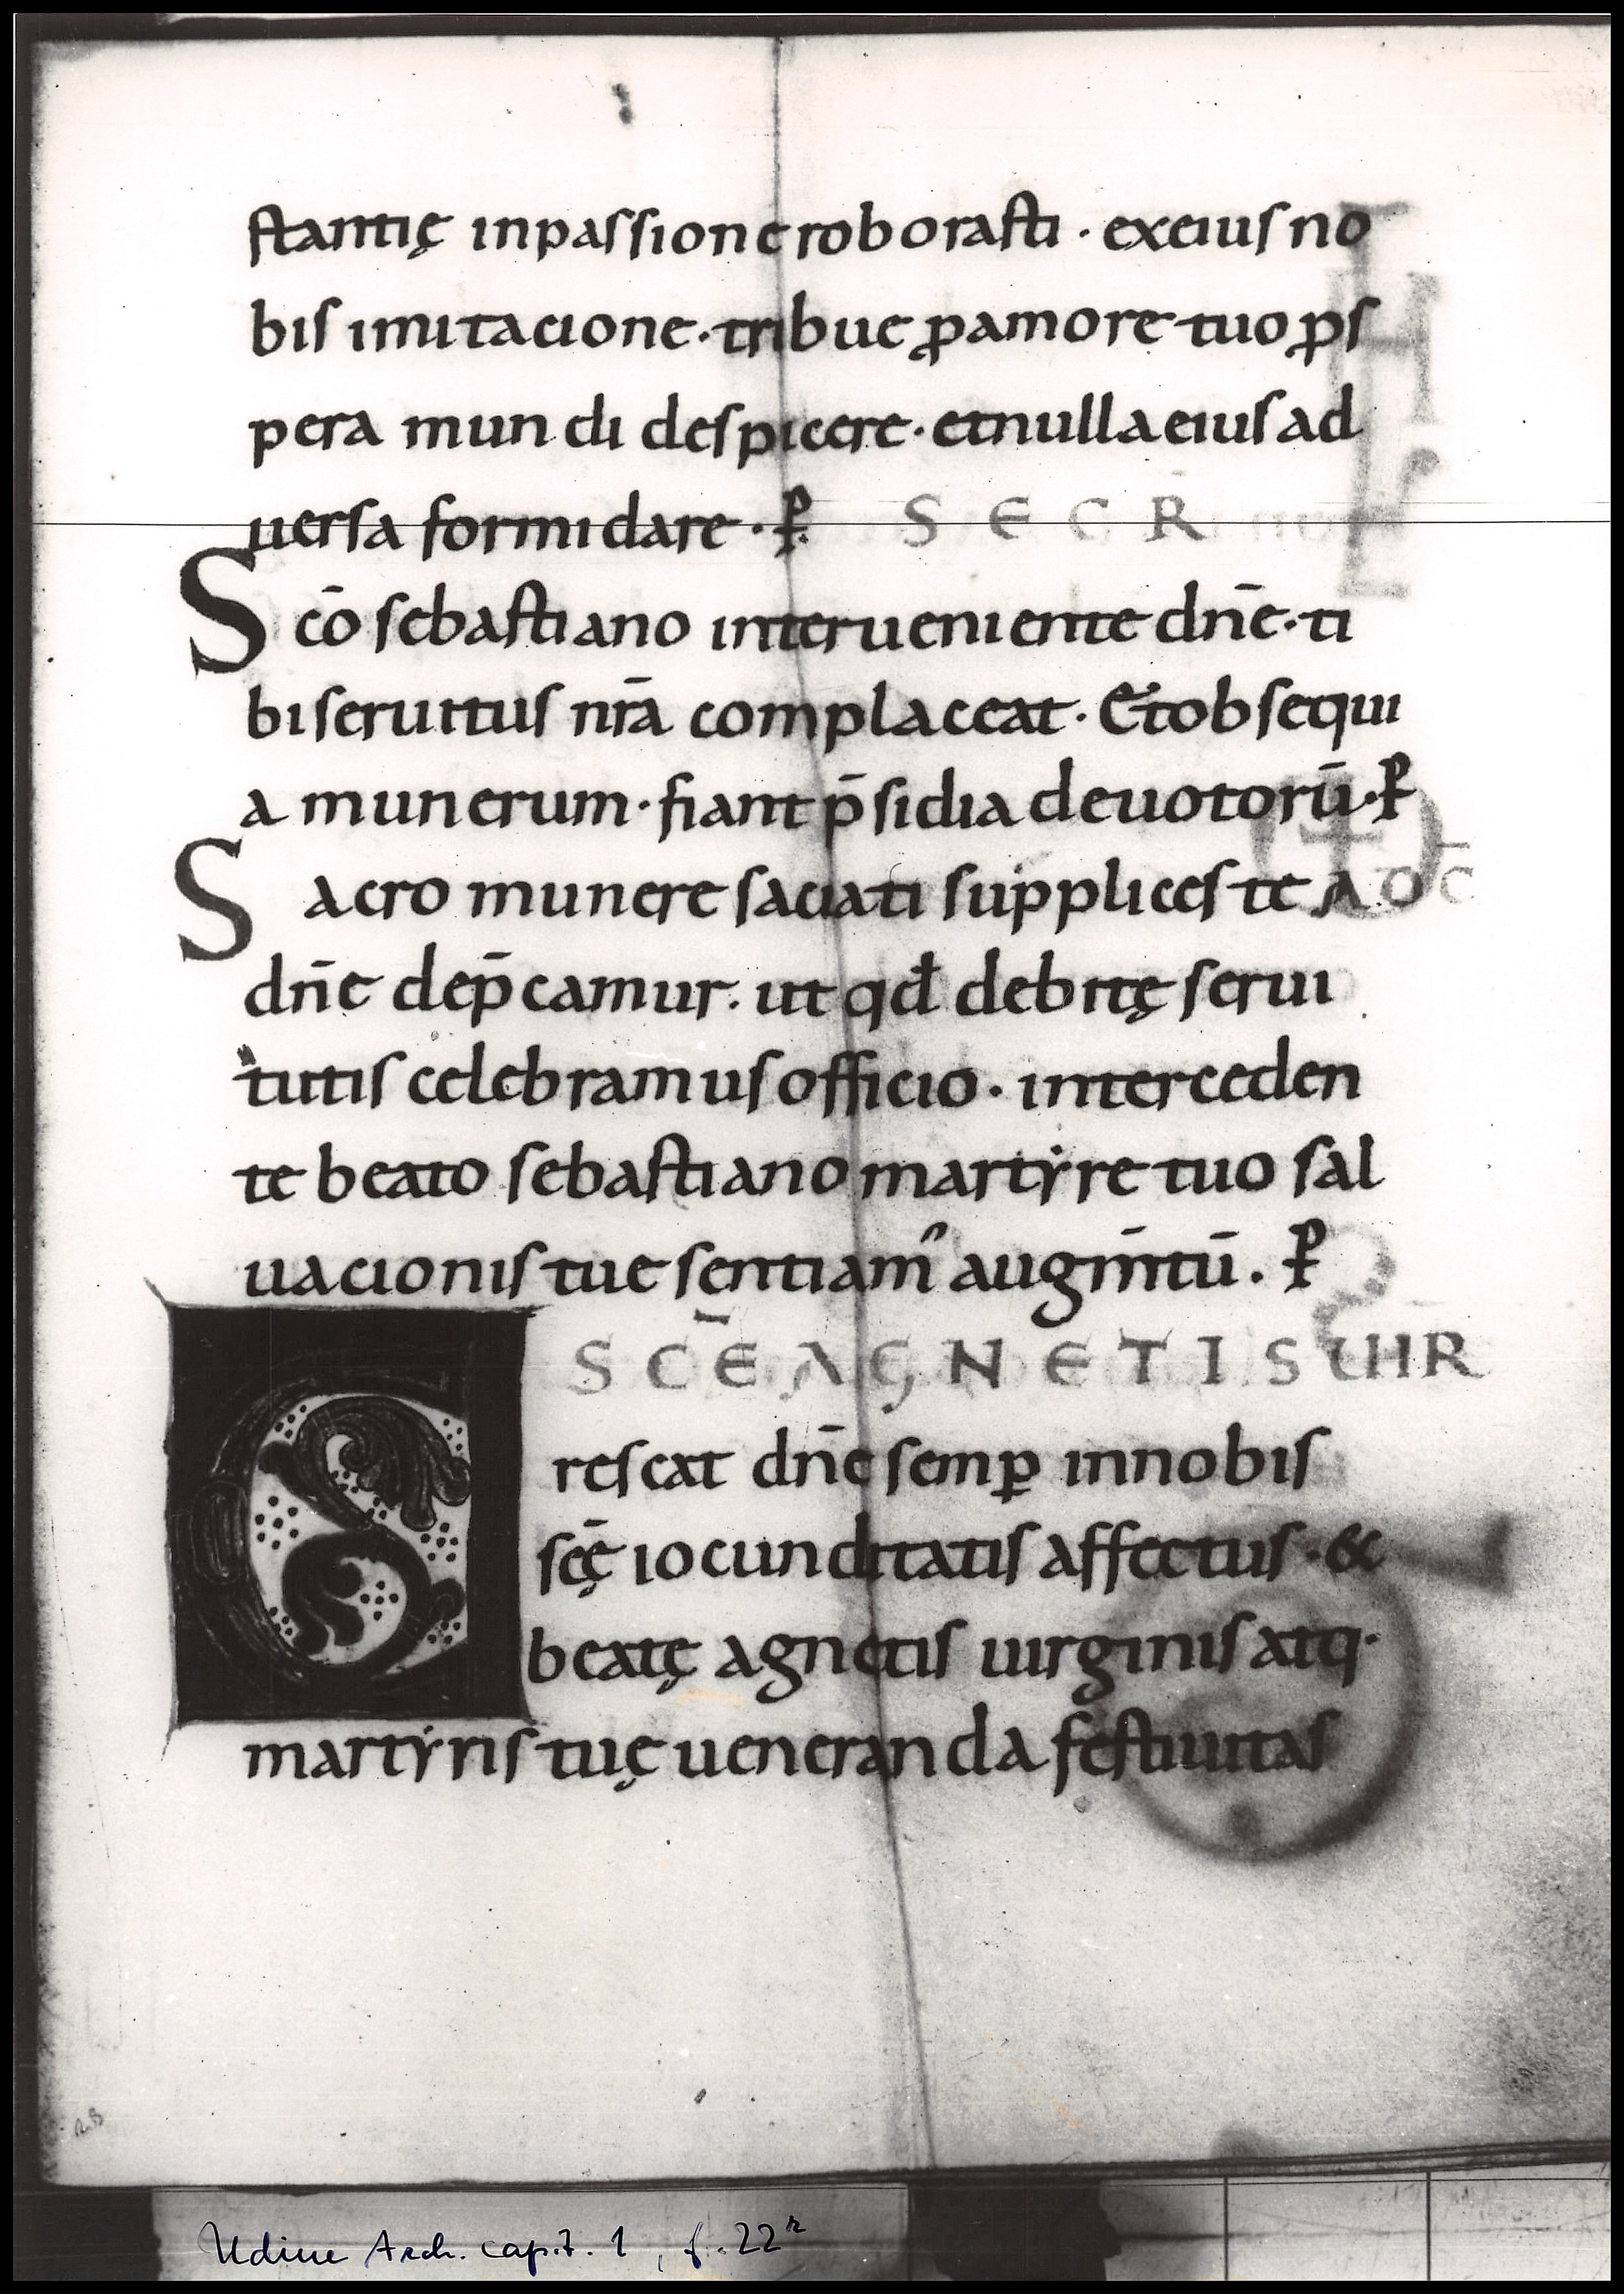 stantię inpassione roborasti · exeius no
bis imitacione · tribue ꝓamore tuo ꝓs
pera mundi despicere · etnulla eius ad
uersa formidare · P̲ SECR̄
Scō sebastiano interueniente dn̄e · ti
bi seruitus nr̄a complaceat · Et obsequi
a munerum · fiant p̄sidia deuotorū · P̲
Sacro munere saciati supplices te AD C̄
dn̄e dep̄camur. ut qđ debitę serui
tutis celebramus officio · interceden
te beato sebastiano martẏre tuo sal
uacionis tue sentiam᷑ augm̄tū . P̲
SCĒ AGNETIS UIR
Crescat dn̄e semꝑ innobis
scę̄ iocunditatis affectus · &
beatę agnetis uirginis atq·
martẏris tuę ueneranda festiuitas
Udine Arch. capit. 1, f. 22r